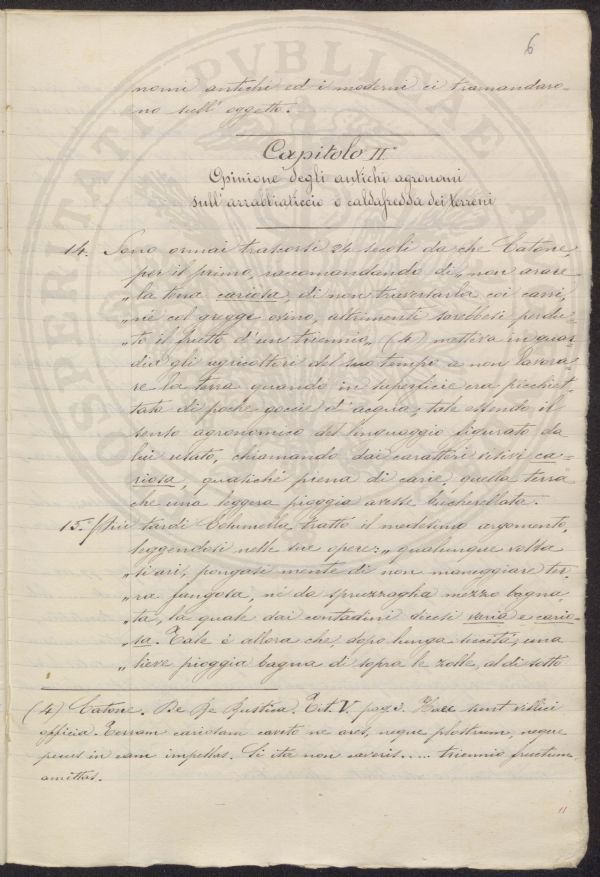 6
nomi antichi ed i moderni ci tramandaro-
no sull' oggetto.
Capitolo II°
Opinione degli antichi agronomi
sull'arrabbiaticcio o caldafredda dei terreni
14. Sono ormai trascorsi 24 secoli da che Catone,
per il primo, raccomandando di „ non arare
„ la terra cariosa, di non traversarla coi carri,
„ nè col gregge ovino, altrimenti sarebbesi perdu-
„ to il frutto d'un triennio, (4) metteva in guar
dia gli agricoltori del suo tempo a non lavora-
re la terra quando in superficie era picchiet
tata di poche goccie d'acqua; tale essendo il
senso agronomico del linguaggio figurato da
lui usato, chiamando dai caratteri visivi ca-
riosa, quasichè piena di carie, quella terra
che una leggera pioggia avesse bucherellata.
15.° Più tardi Columella trattò il medesimo argomento,
leggendosi nelle sue opere: „ qualunque volta
„ si ari, pongasi mente di non maneggiare ter-
„ ra fangosa, nè da spruzzaglia mezzo bagna-
„ ta, la quale dai contadini dicesi varia e cario-
„ sa. Tale è allora che, dopo lunga siccità, una
„ lieve pioggia bagna di sopra le zolle, al di sotto
(4) Catone. De Re Rustica. Tit. V. pag. Haec sunt villici
officia. Terram cariosam caveto ne ares, neque plostrum, neque
pecus in eam impellas. Si ita non caveris..... triennio fructum
amittas.
11
PROSPERITATI PVBLICAE